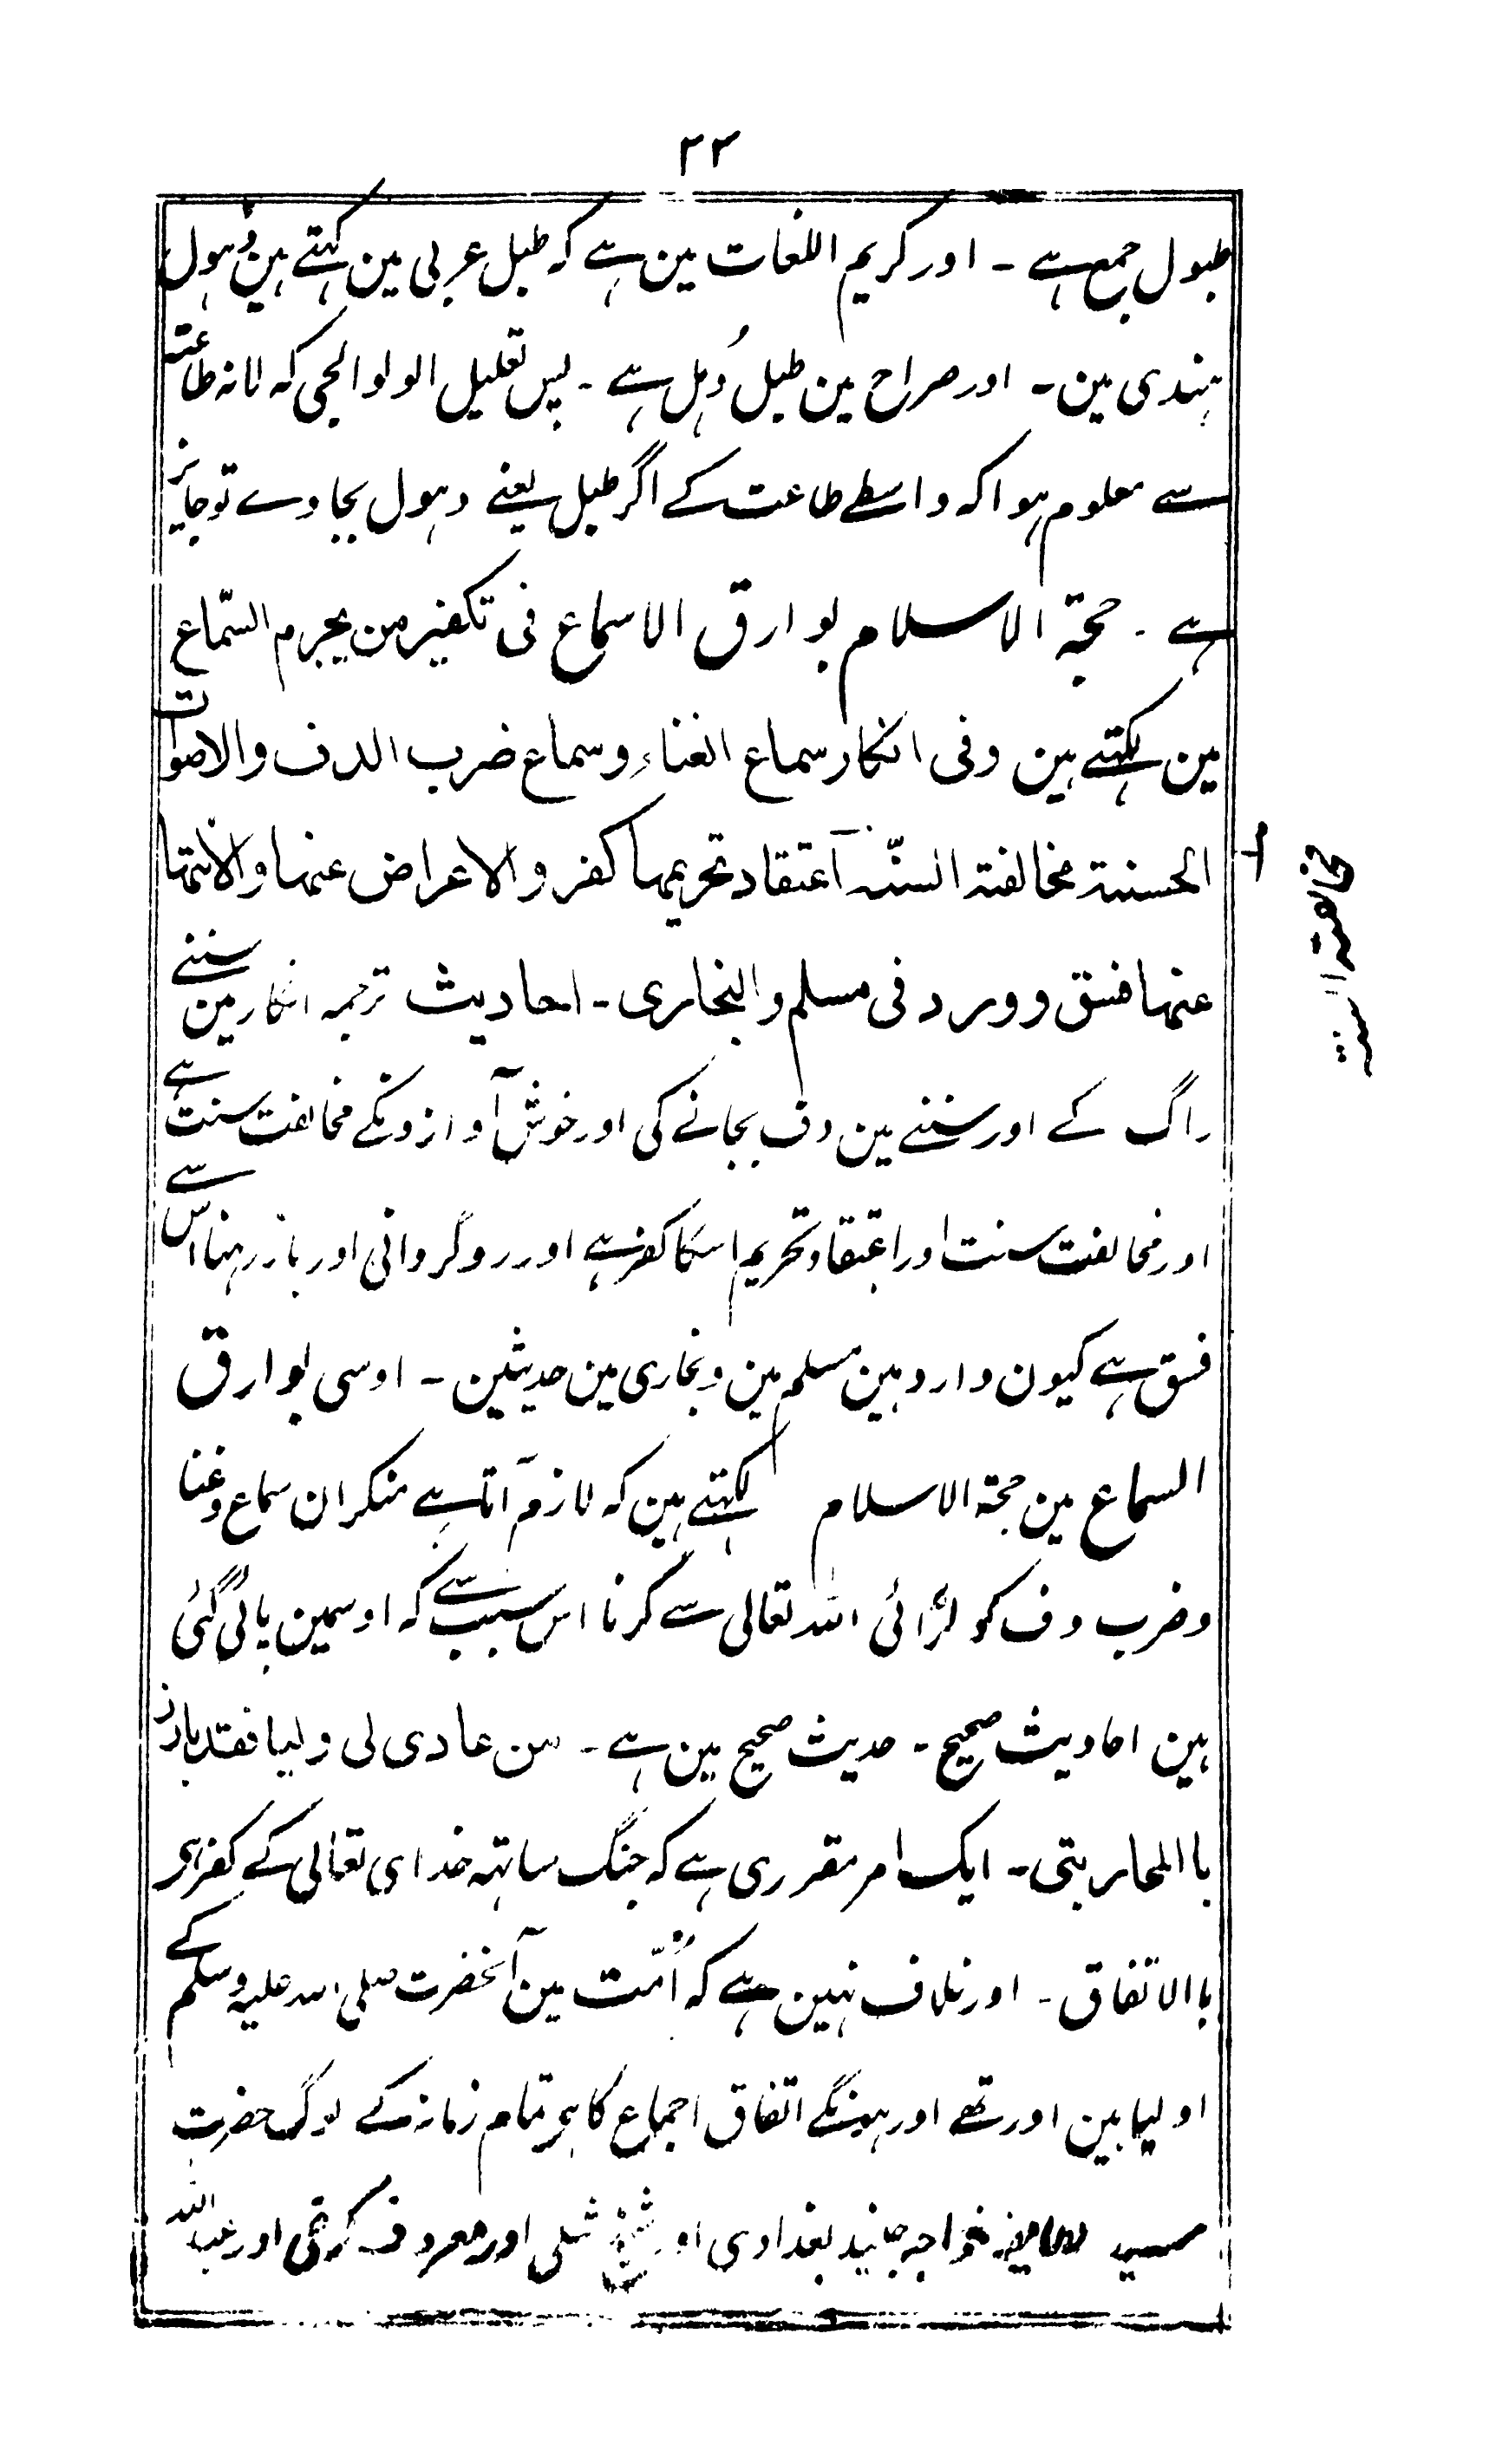 ۳۳
طبول جمع ہے ۔ اور کریم اللغات مین ہے کہ طبل عربی مین کہتے ہین ڈہول
ہندی مین ۔ اور صراح مین طبل دُہل ہے ۔ پس تعلیل الولوالجی کہ لانہ طاعتہ
سے معلوم ہوا کہ واسطے طاعت کے اگر طبل یعنے دہول بجاوے توجایز
ہے ۔ حجۃ الاسلام بوارق الاسماع فی تکفیر من یحرم السّماع
مین لکہتے ہین وفی انکار سماع الغناء وسماع ضرب الدف والاصوات
الحسنۃ مخالفۃ السنّۃ آعتقاد تحریمہا کفر والاعراض عنہا والانتہا
عنہا فسق وورد فی مسلم والبخاری ۔ احادیث ترجمہ انکار مین سننے
راگ کے اور سننے مین دف بجانے کی اور خوش آوازونکے مخالفت سنت ہے
اور مخالفت سنت اور اعتقاد تحریم اسکا کفر ہے اور روگردانی اور باز رہنا اس سے
فسق ہے کیون وارد ہین مسلم مین و بخاری مین حدیثین ۔ اوسی بوارق
السماع مین حجۃ الاسلام لکہتے ہین کہ لازم آتا ہے منکران سماع وغنا
وضرب دف کو لڑائی اللہ تعالی سے کرنا اس سبب سے کہ اوسمین پائی گئی
ہین احادیث صحیح ۔ حدیث صحیح مین ہے ۔ من عادی لی ولیا فقد بارز
باالمحاربتی ۔ ایک امر مقرری ہے کہ جنگ ساتہہ خدای تعالی کے کفر ہی
باالاتفاق ۔ اور خلاف نہین ہے کہ اُمّت مین آنحضرت صلی اللہ علیہ وسلم کے
اولیا ہین اور تھے اور ہونگے اتفاق اجماع کا ہی تمام زمانہ کے لوگ حضرت
سید خواجہ جنید بغدادی اور شیخ شبلی اور معروف کرخی اور عبد اللہ
مخالفۃ السنۃ